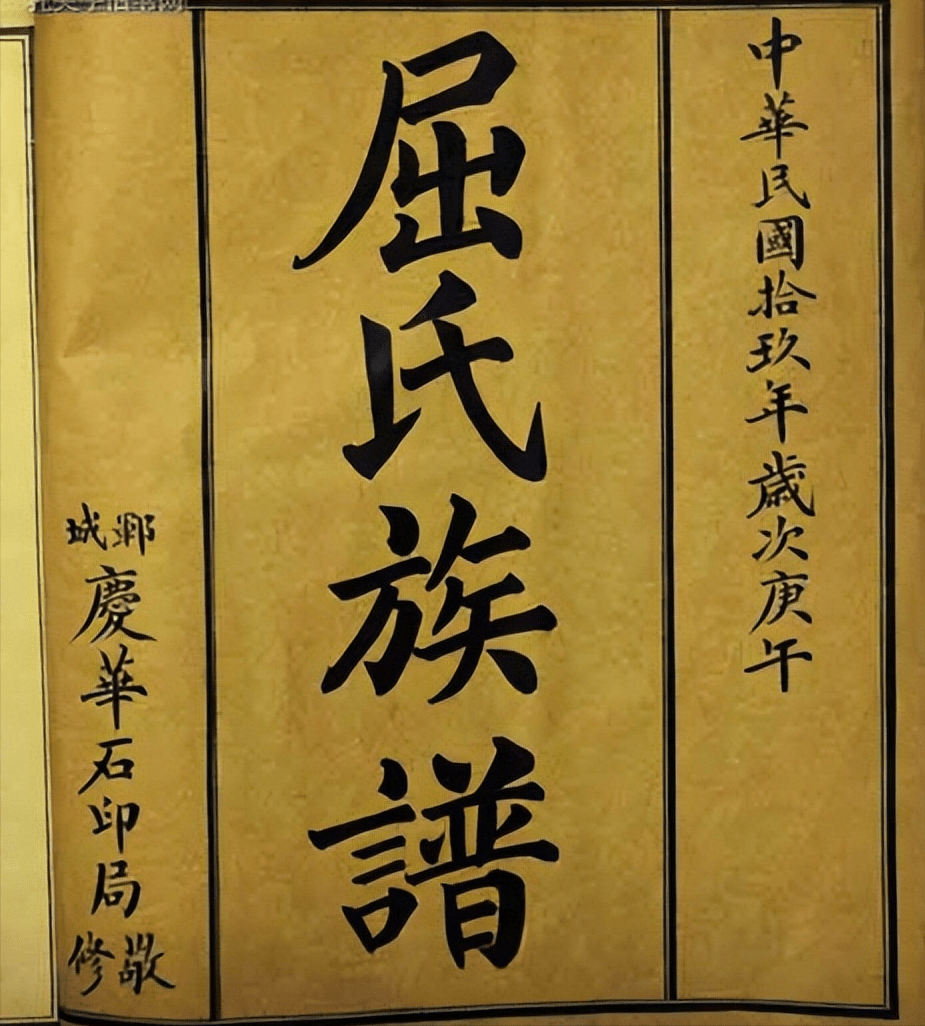 中華民國拾玖年歲次庚午
屈氏族譜
鄆城慶華石印局敬修